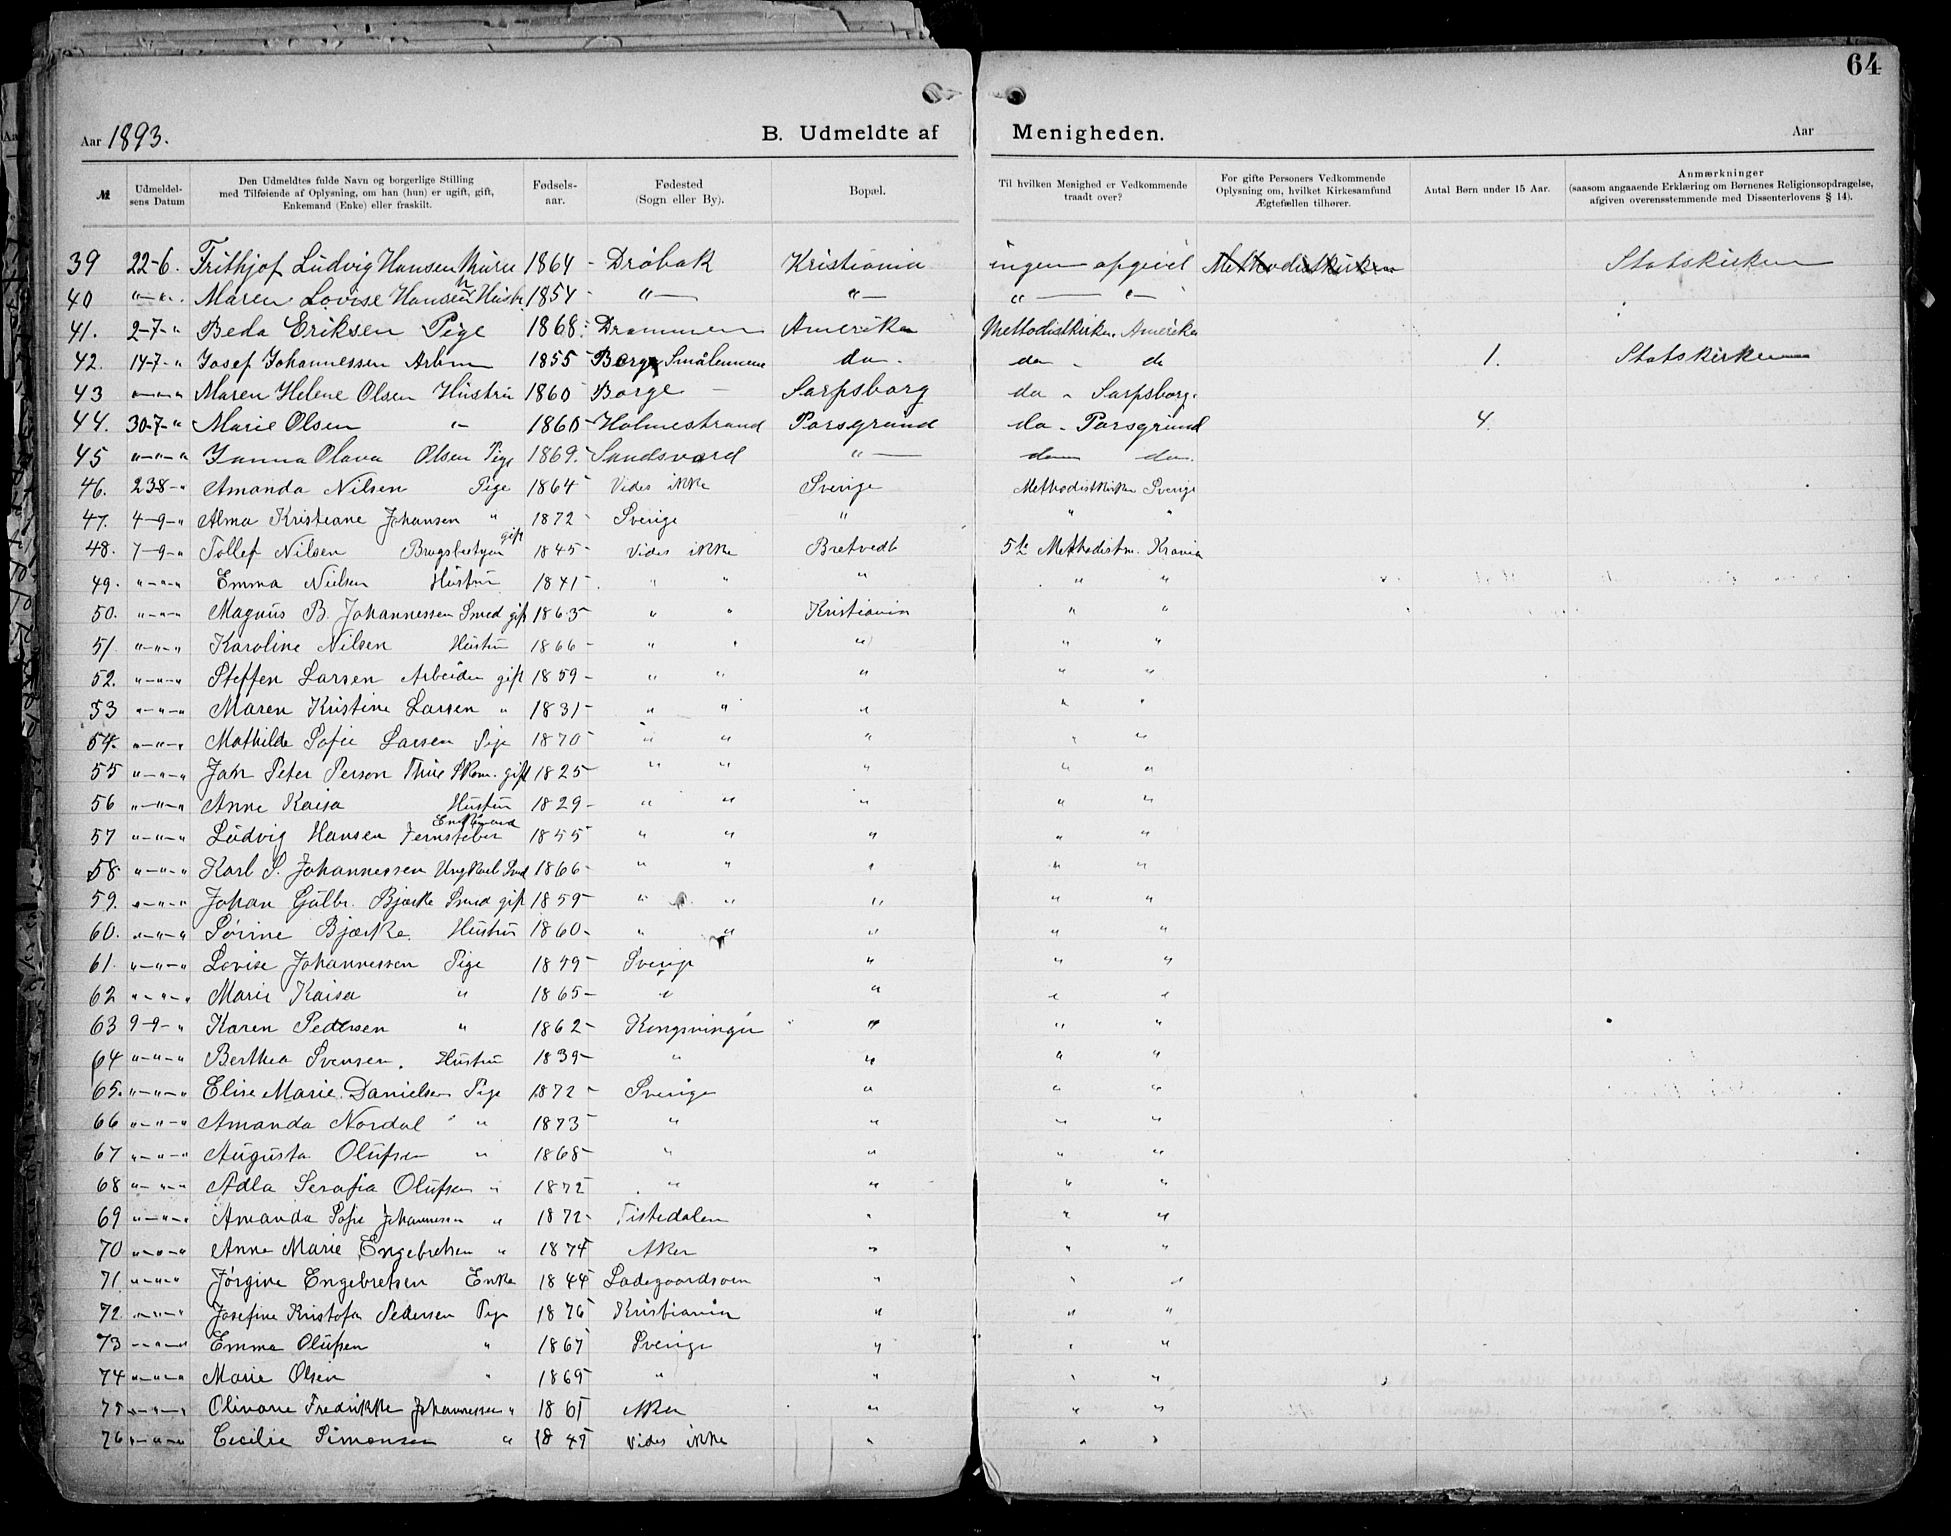 64
Aar 1893. B. Udmeldte af Menigheden. Aar
№ Udmeldelsens Datum Den Udmeldtes fulde Navn og borgerlige Stilling med Tilføiende af Oplysning, om han (hun) er ugift, gift, Enkemand (Enke) eller fraskilt. Fødselsaar. Fødested (Sogn eller By). Bopæl. Til hvilken Menighed er Vedkommende traadt over? For gifte Personers Vedkommende Oplysning om, hvilket Kirkesamfund Ægtefællen tilhører. Antal Børn under 15 Aar. Anmærkninger (saasom angaaende Erklæring om Børnenes Religionsopdragelse, afgiven overensstemmende med Dissenterlovens § 14).
39 22-6. Frithjof Ludvig Hansen 1864 - Drøbak Kristiania ingen opgivel Methodistkirken Statskirken
40 "-". Maren Lovise Hansen Hustr 1854 - "— "— "— "-
41. 2-7-" Beda Eriksen Pige 1868: Drammen Amerika Methodistkirken. Amerika
42. 14-7-" Josef Johannessen Arbm 1855 - Borge Smålenene do. do - do 1. Statskirken
43 "-"-" Maren Helene Olsen Hustru 1860 Borge - Sarpsborg do " Sarpsborg.
44. 30-7-" Marie Olsen "- 1860 - Holmestrand Porsgrund do - Porsgrund 4.
45 "-"-" Janna Olava Olsen Pige 1869. Sandsværd "— do do.
46. 23-8-" Amanda Nilsen Pige 1864 Vides ikke Sverige Methodistkirken Sverige
47. 4-9-" Alma Kristiane Johansen " 1872 - Sverige " " "
48. 7-9-" Tollef Nilsen Brugsbestyrer gift 1845 - Vides ikke Bretvedt 5te Methodistm. Krania
49. "-"-" Emma Nielsen Hustru 1841 - " " " " "
50. "-"-" Magnus B. Johannessen Smed gift 1863 - " " Kristiania " "
51. "-"-" Karoline Nilsen Hustru 1866 - " " " " "
52. "-"-" Steffen Larsen Arbeider gift 1859 - " " " " "
53 "-"-" Maren Kristine Larsen " 1831 - " " " " "
54. "-"-" Mathilde Sofie Larsen Pige 1870 - " " " " "
55 "-"-" Jon Peter Person Skom. gift 1825 - " " " " "
56 "-"-" Anne Kaisa Hustru 1829 - " " " " "
57 "-"-" Ludvig Hansen Jernstøber Enkemand 1855 - " " " " "
58. "-"-" Karl S. Johannessen Ungkarl Smd 1866 - " " " " "
59. "-"-" Johan Gulbr. Bjærke Smed gift 1859 - " " " " "
60. "-"-" Sørine Bjærke. Hustru 1860 - " " " " "
61. "-"-" Lovise Johannessen Pige 1849 - Sverige " " "
62 "-"-" Marie Kaisa " 1865 - " " " "
63 9-9-" Karen Pedersen " 1862 - Kongsvinger " " "
64 "-"-" Berthea Svensen. Hustru 1839 - " " " "
65. "-"-" Elise Marie Danielsen Pige 1872 - Sverige " " "
66 "-"-" Amanda Nordal " 1873 - " " " "
67 "-"-" Augusta Olufsen " 1868 - " " " "
68 "-"-" Adla Serafia Olufsen " 1872 " " " "
69 "-"-" Amanda Sofie Johannessen " 1872 - Tistedalen " " "
70 "-"-" Anne Marie Engebretsen " 1874 Aker " " "
71 "-"-" Jørgine Engebretsen Enke 1844 Ladegaardsøen " " "
72. "-"-" Josefine Kristofa Pedersen Pige 1876 Kristiania " " "
73 "-"-" Emma Olufsen " 1867 Sverige " " "
74 "-"-" Marie Olsen " 1869 " " " "
75 "-"-" Olivare Fredrikke Johannessen " 1861 Aker " " "
76 "-"-" Cecilie Simonsen " 1847 Vides ikke " " "